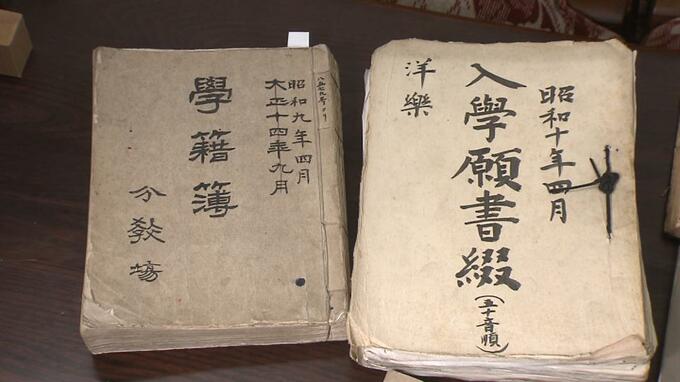 昭和九年四月
大正十四年九月
學籍簿
分敎塲
昭和十年四月
入學願書綴(五十音順)
洋樂